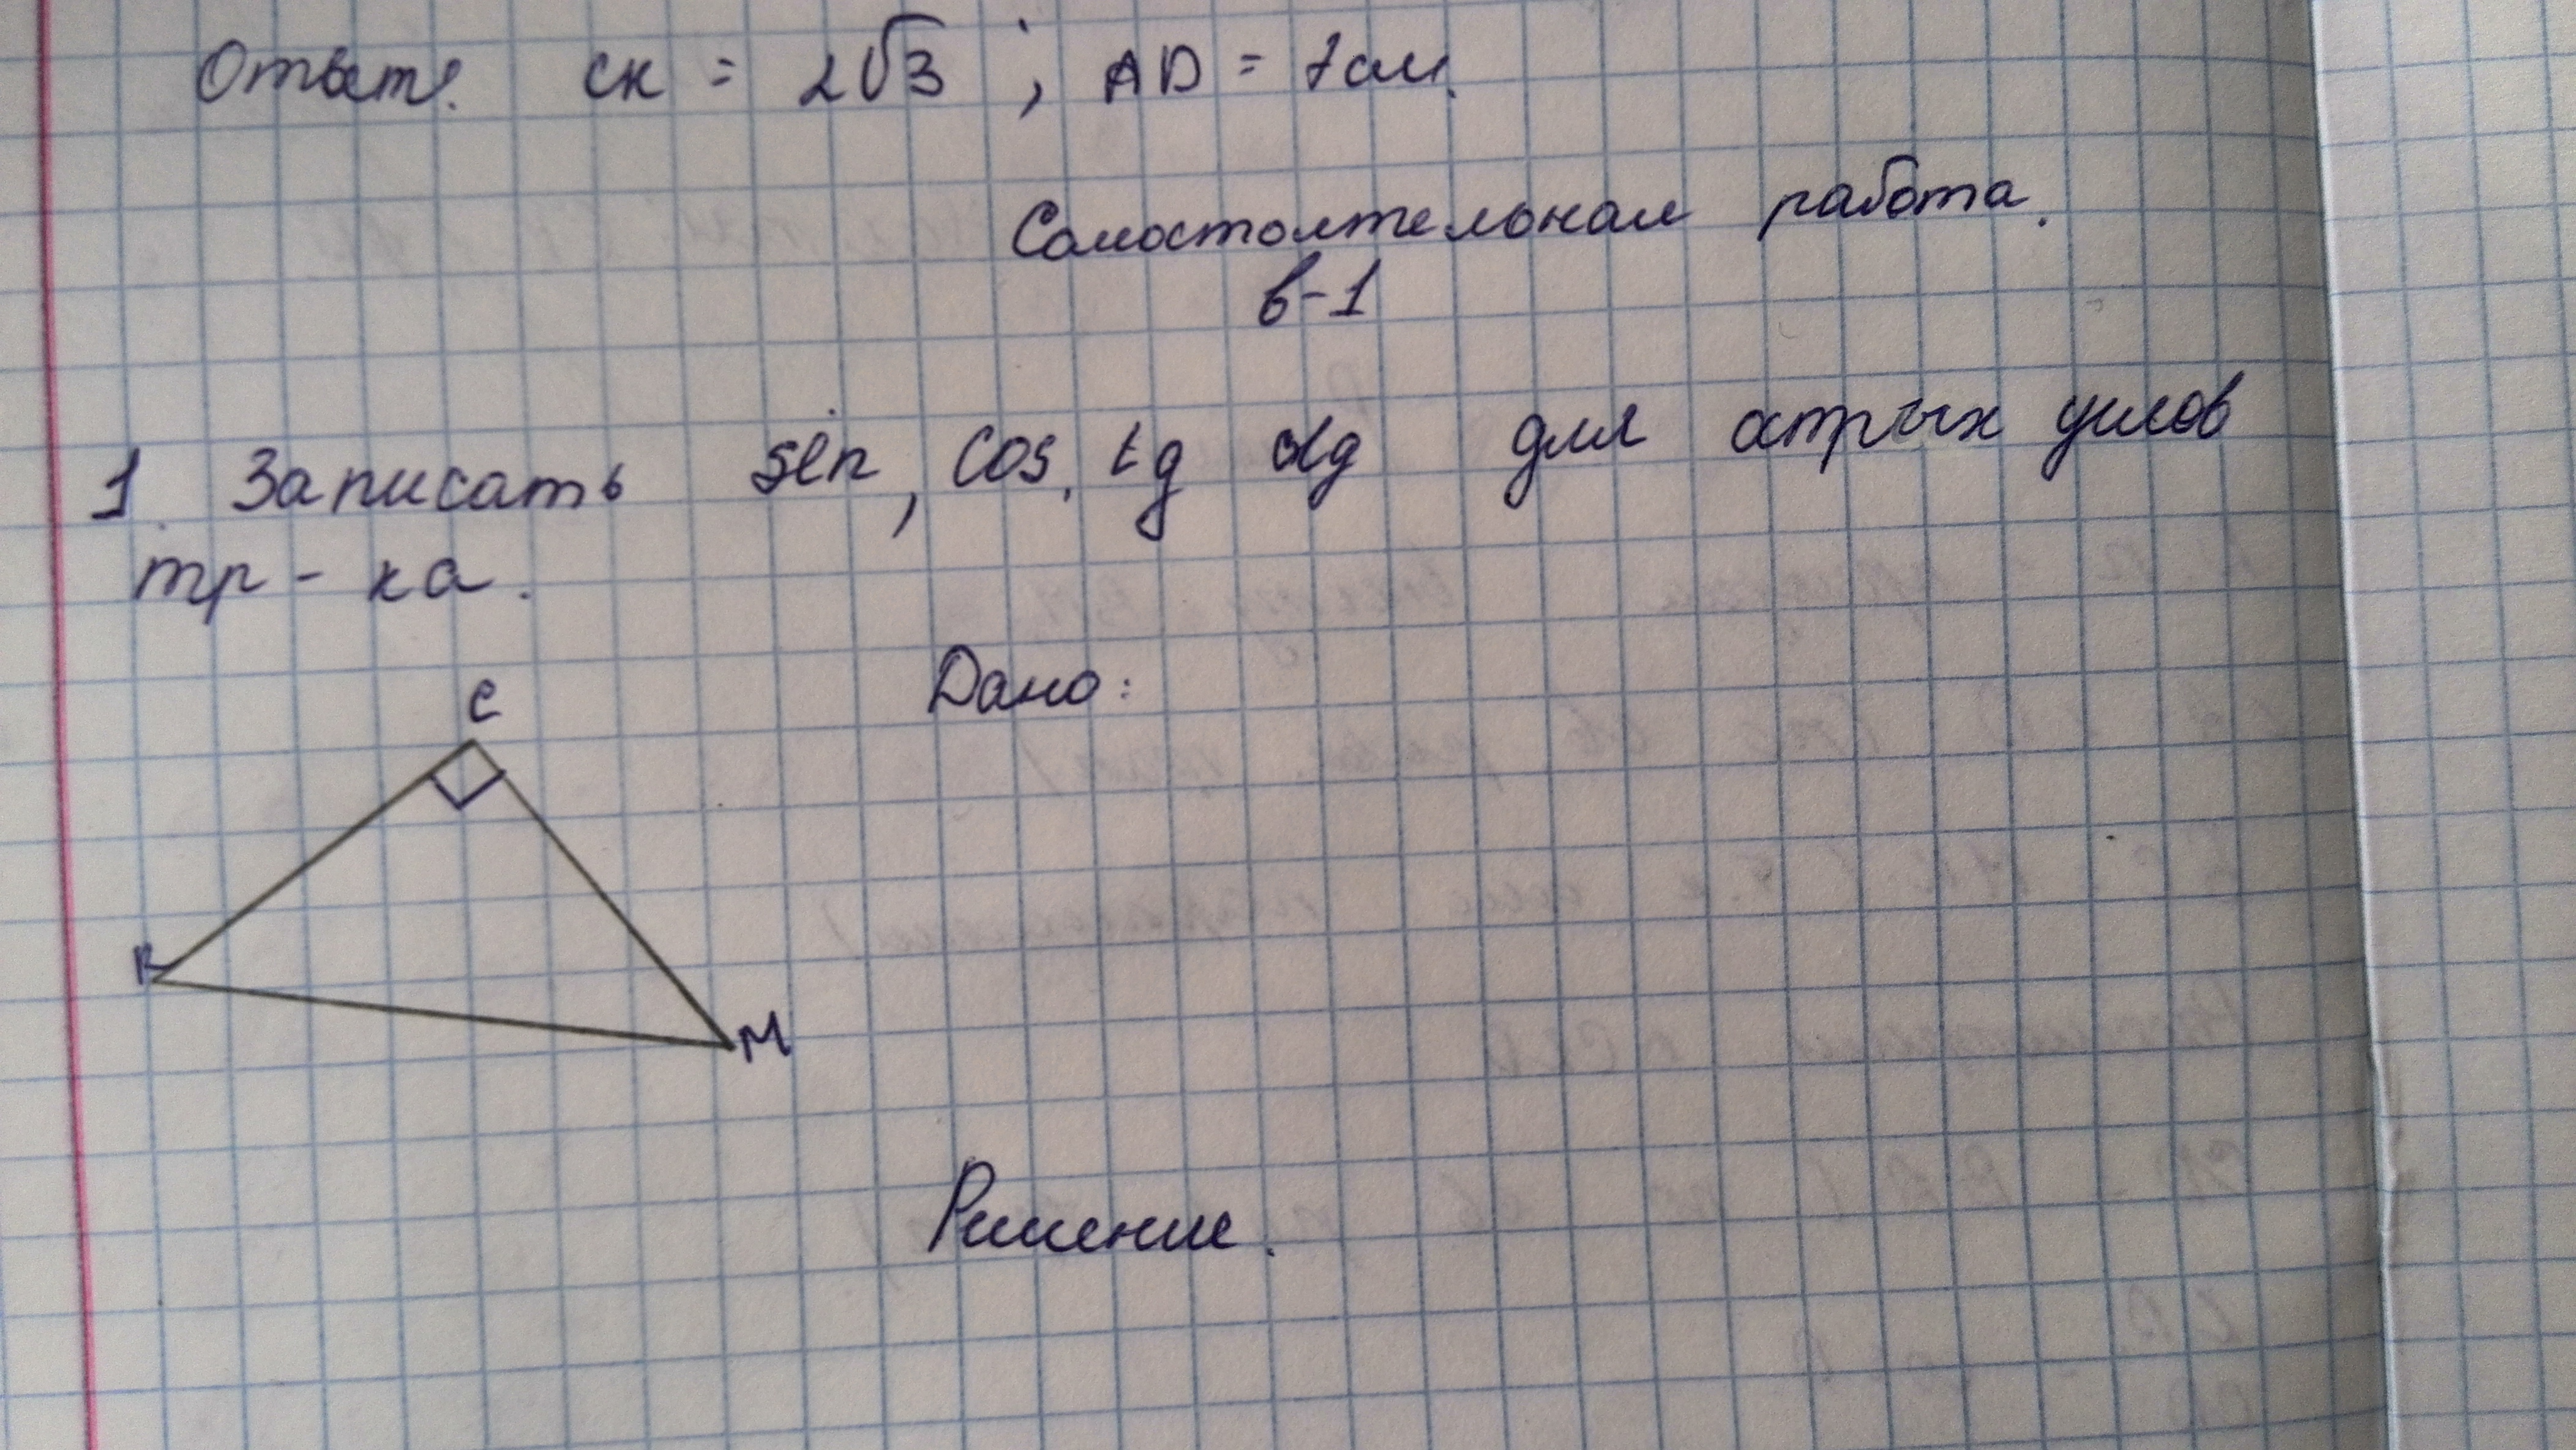 Ответ: СК = 2√3 ; AD = 7см.
Самостоятельная работа.
В-1
1. Записать sin, cos, tg ctg для острых углов
тр-ка.
Дано:
C
K
M
Решение.